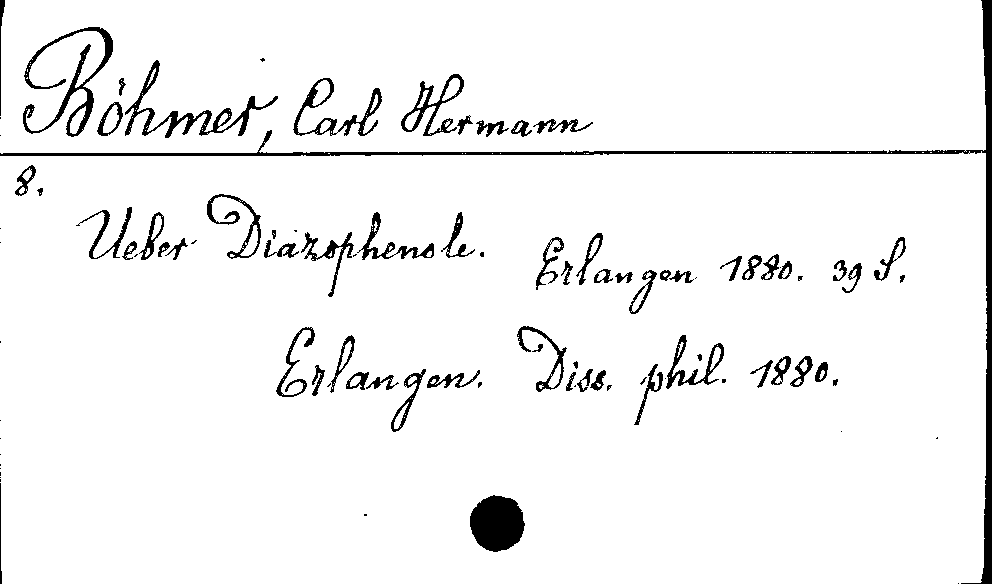 Böhmer, Carl Hermann
8.
Ueber Diazophenole. Erlangen 1880. 39 S.
Erlangen. Diss. phil. 1880.